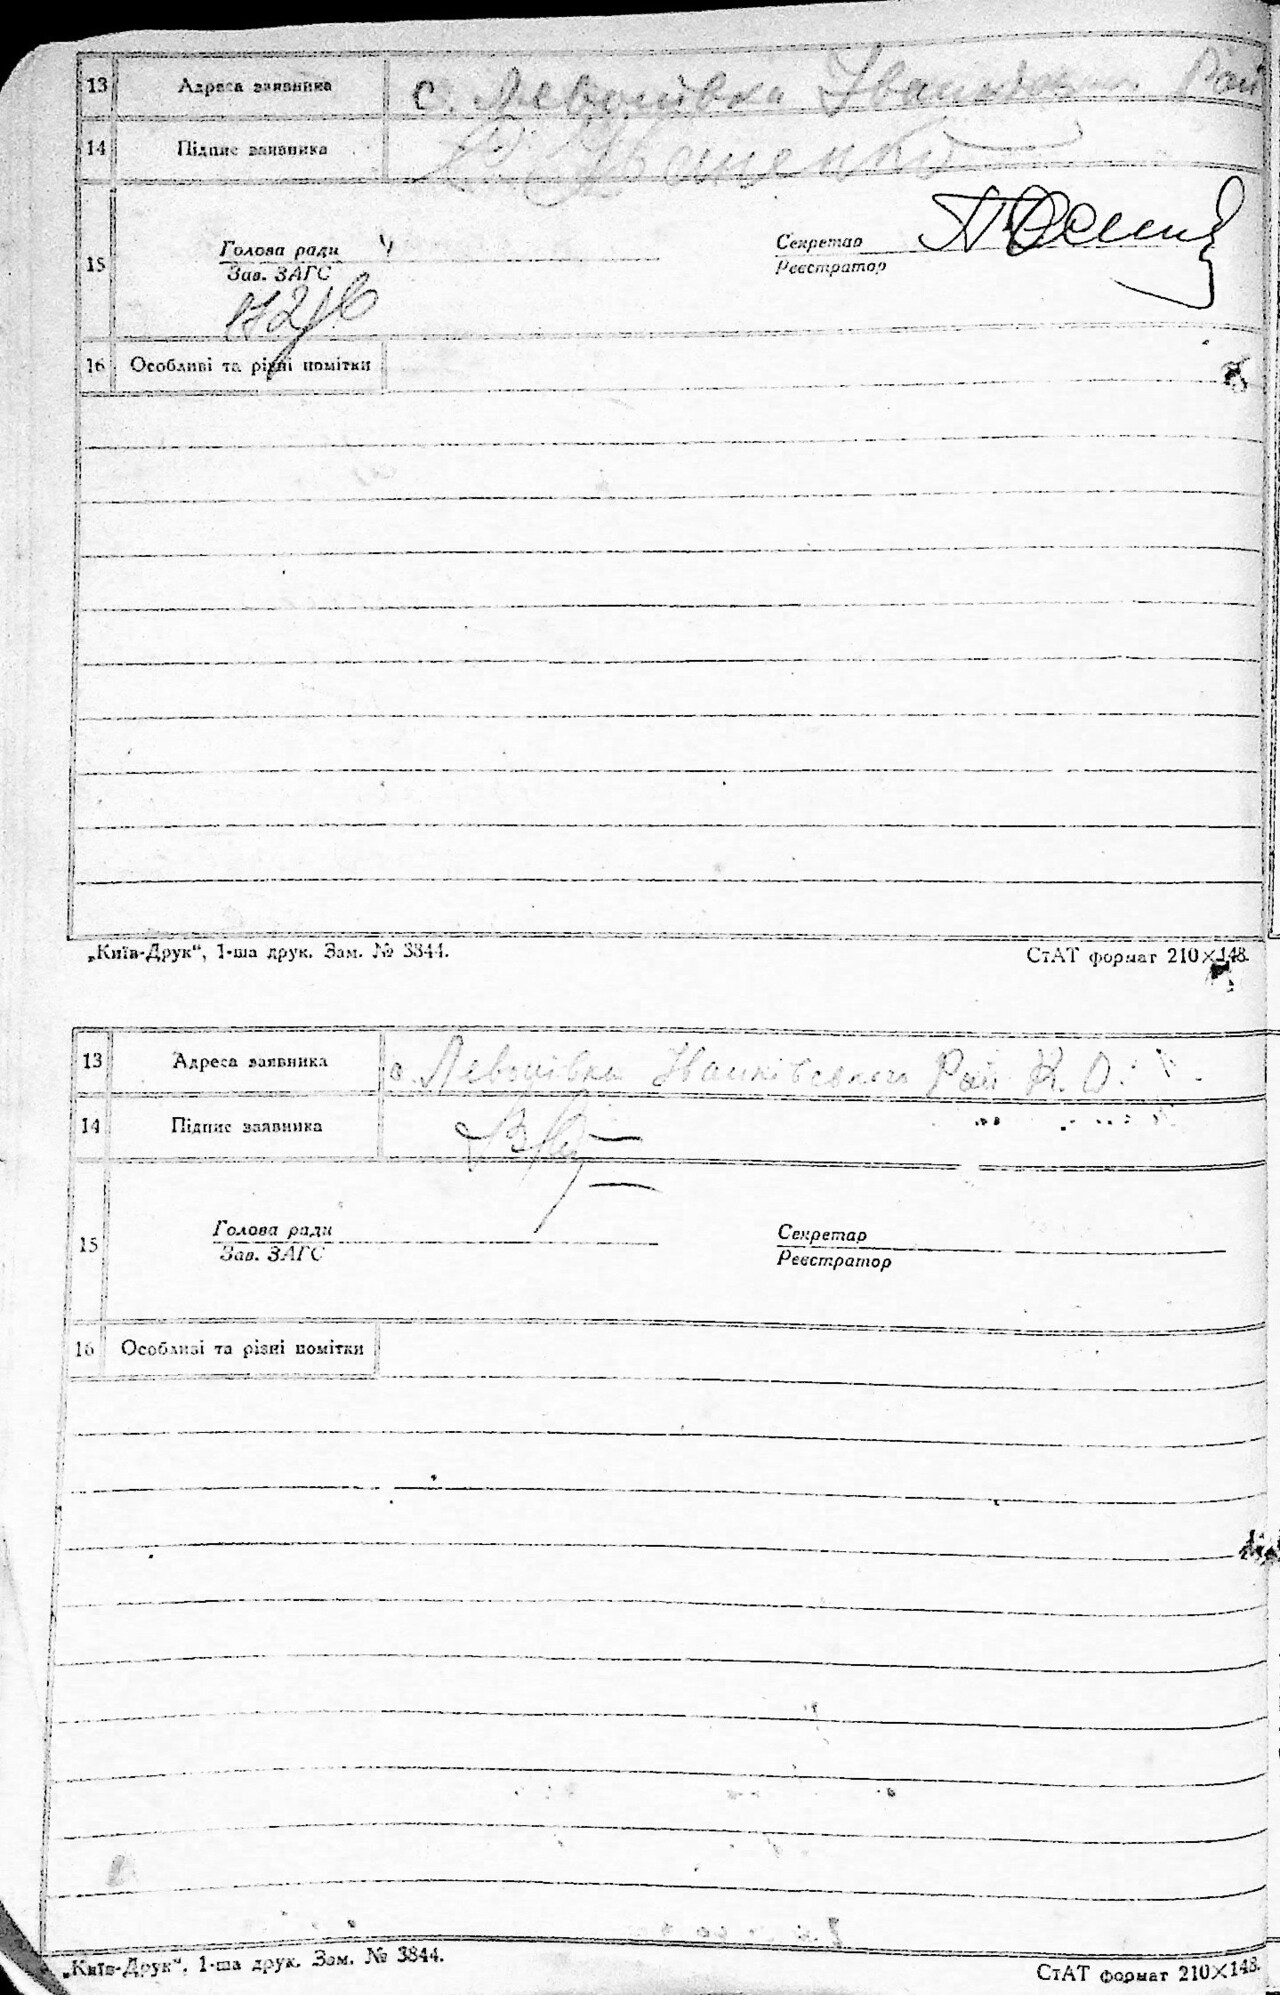 13 Адреса заявника с. Левонівка Іванківськ. Рай
14 Підпис заявника
Голова ради Секретар
15
Зав. ЗАГС Реєстратор
16 Особливі та різні помітки
„Київ-Друк“, 1-ша друк. Зам. № 3844. СтАТ формат 210×148.
13 Адреса заявника с. Левонівка Іванківського Рай К. О.
14 Підпис заявника
Голова ради Секретар
15
Зав. ЗАГС Реєстратор
16 Особливі та різні помітки
„Київ-Друк“, 1-ша друк. Зам. № 3844. СтАТ формат 210×148.